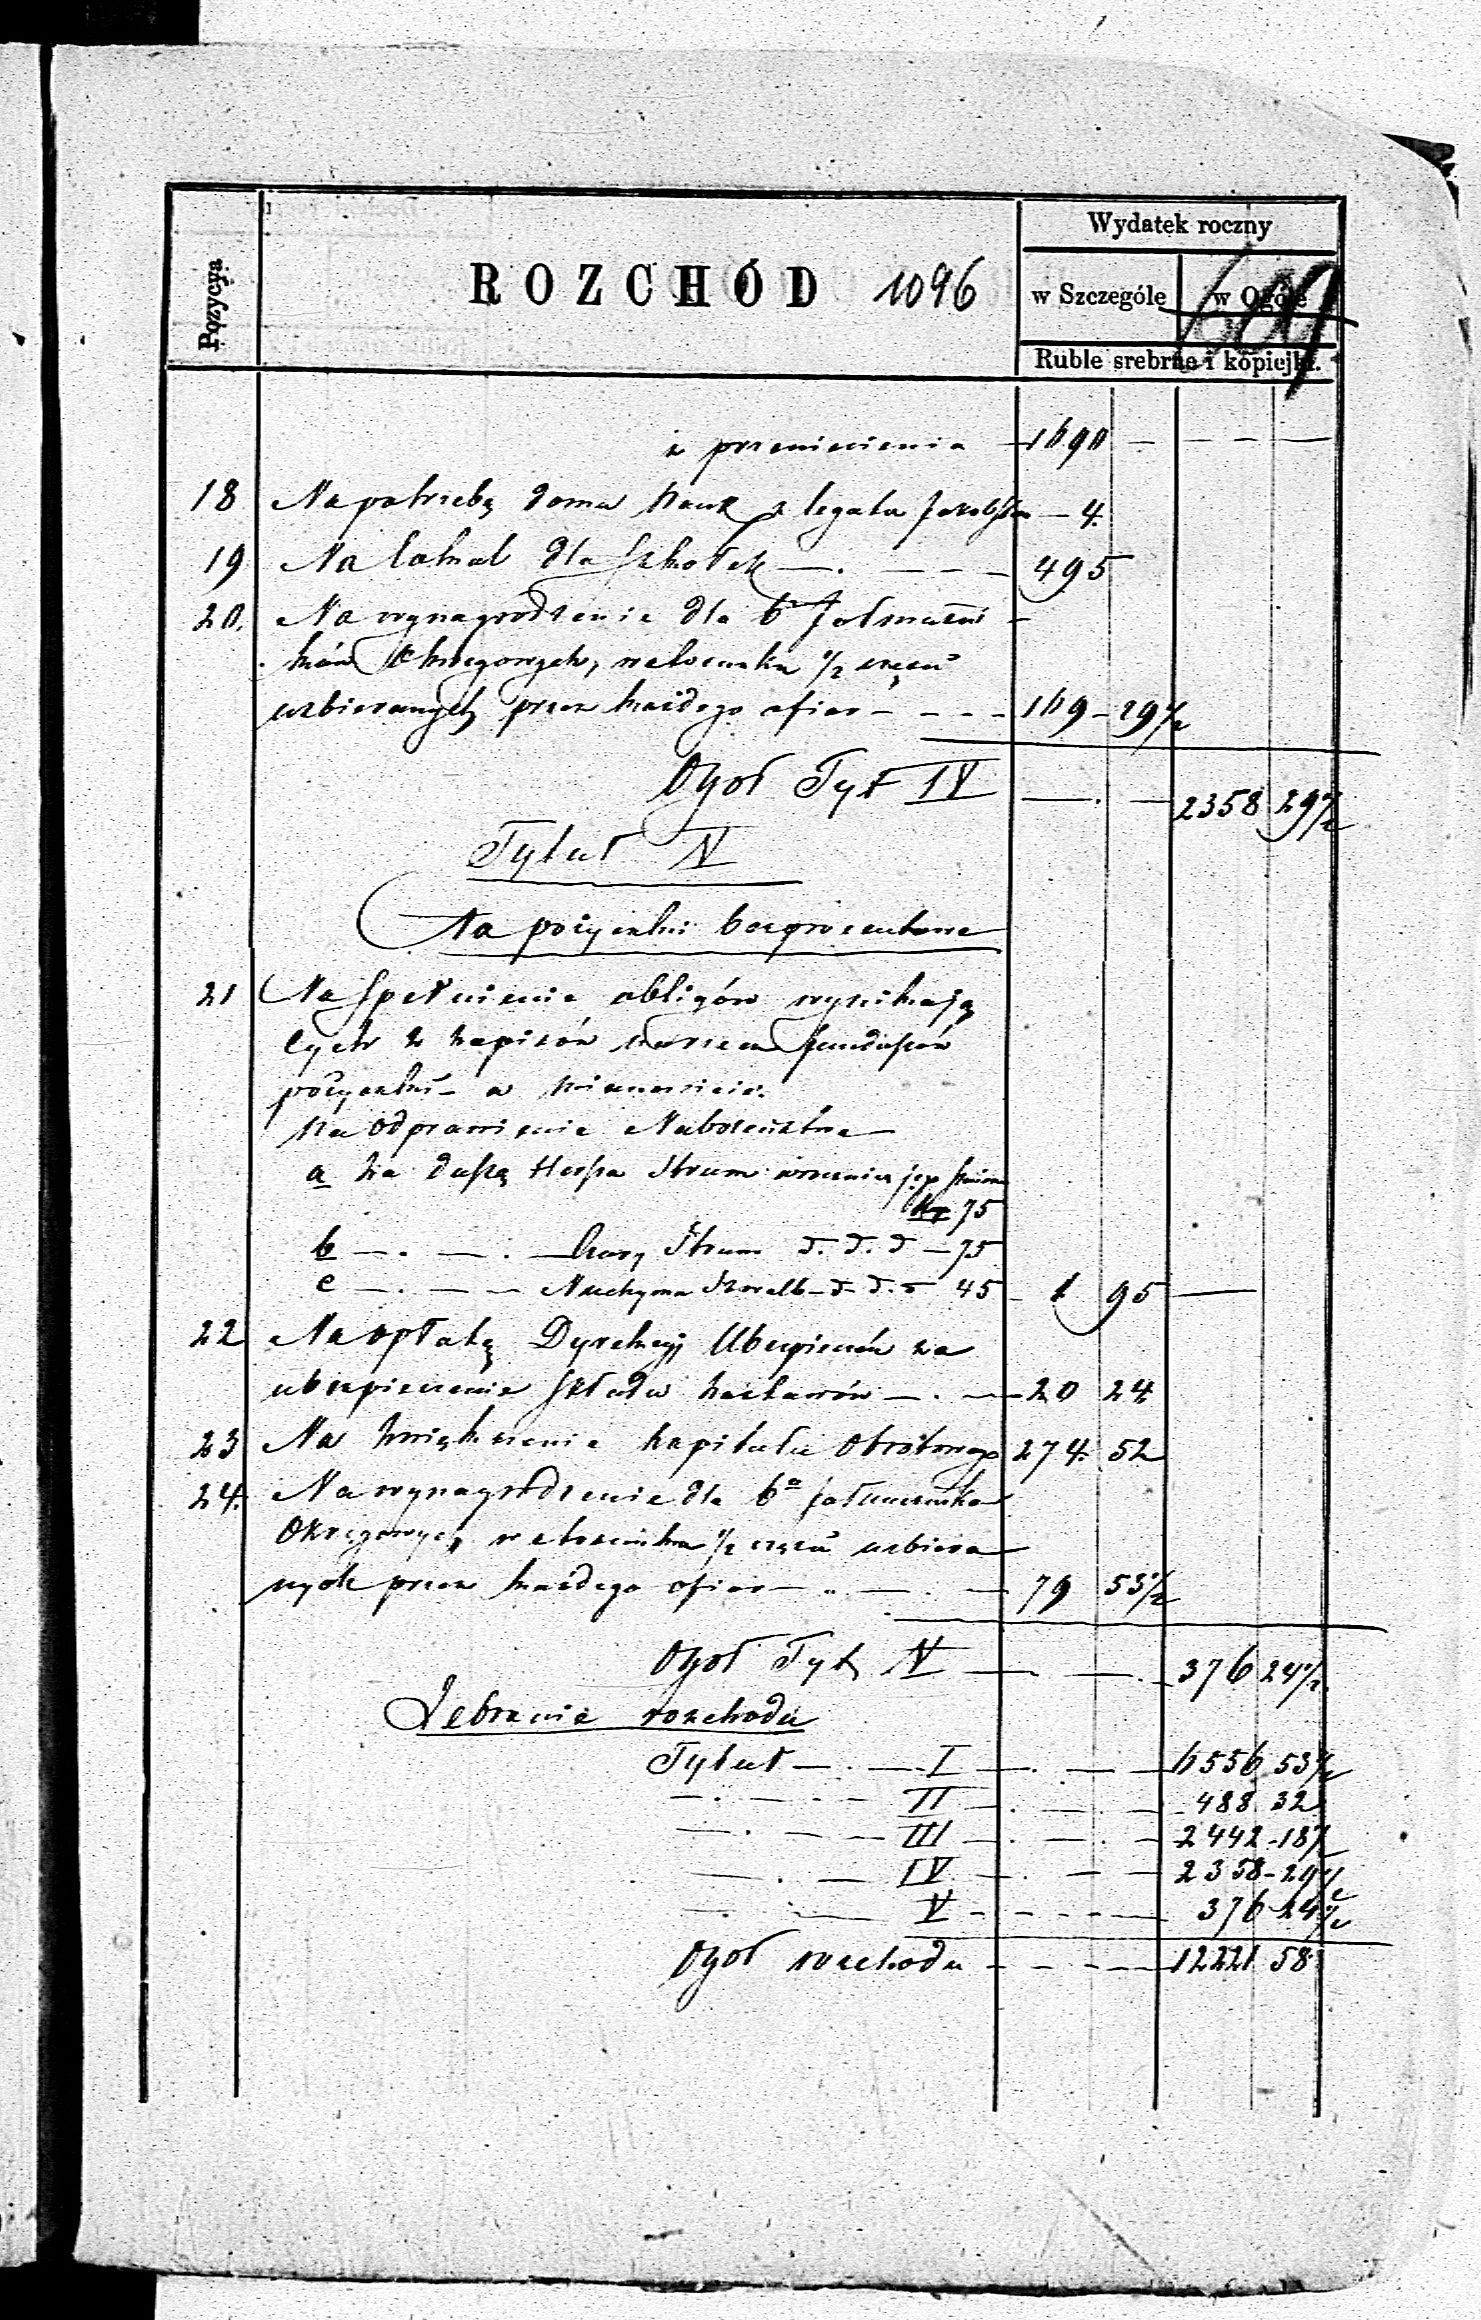 Wydatek roczny
Pozycja
ROZCHÓD 1096
w Szczególe w Ogóle
609
Ruble srebrne i kopiejki.
z przeniesienia — 1690 —
18 Na potrzebę domu Nauk z legatu — 4.
19 Na lokal dla Szkołek — 495
20. Na wynagrodzenie dla 6
ków Okręgowych, w stosunku ½ części
uzbieranych przez każdego ofiar — 169 — 29½
Ogół Tyt IV — 2358 29½
Tytuł V
Na pożyczki bezprocentowe
21 Na spełnienie obligów wynikają
cych z zapisów na rzecz funduszów
pożyczki — a mianowicie:
na odprawienie Nabożeństwa
a za duszę Hersza Sztrum w rocznicę jego śmierci
75
b — . — . — Sztrum d. d. d — 75
c — . — — Nuchyma — d. d. d 45 — 1 95 —
22 Na opłatę Dyrekcyj Ubezpieczeń za
ubezpieczenie składu zastawów — . — 20 24
23 Na zwiększenie kapitału obrotowego 274. 52
24. Na wynagrodzenie dla 6
Okręgowych, w stosunku ½ części uzbiera
nych przez każdego ofiar — 79 53½
Ogół Tyt V — 376 24½
Zebranie rozchodu
Tytuł — . — I — . — 6556 53½
— . — . — II — . — 488 32
— . — — III — . — . — 2442 — 18½
— . — IV — . — — 2358 — 29½
— . — V — — — 376 24½
Ogół rozchodu — — — 12221 58